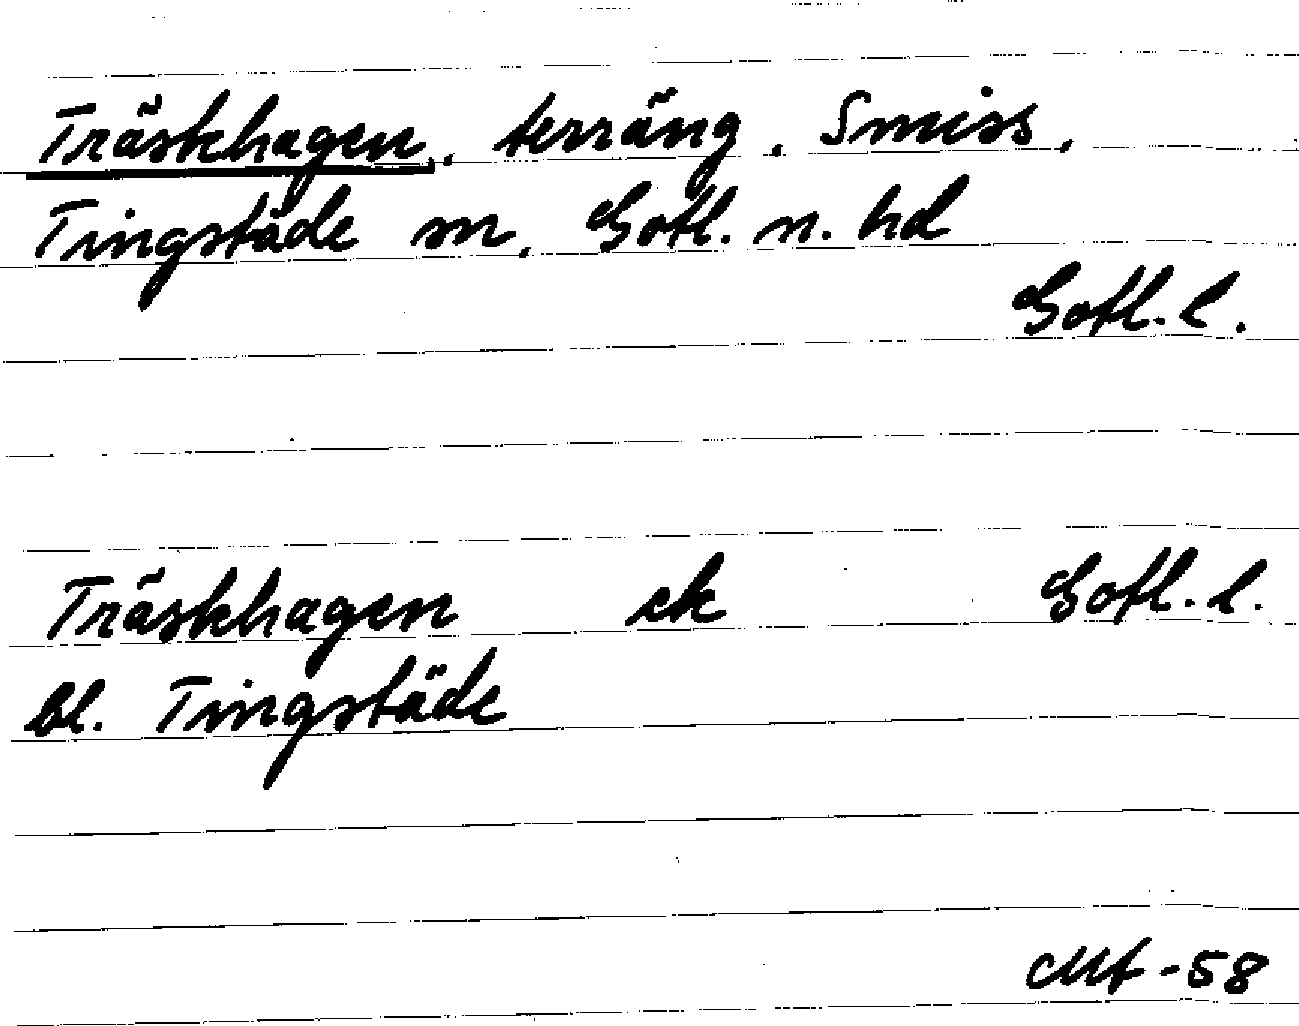 Träskhagen, terräng, Smiss,
Tingstäde sn, Gotl. n. hd
Gotl. l.
Träskhagen ek Gotl. l.
bl. Tingstäde
Mf -58